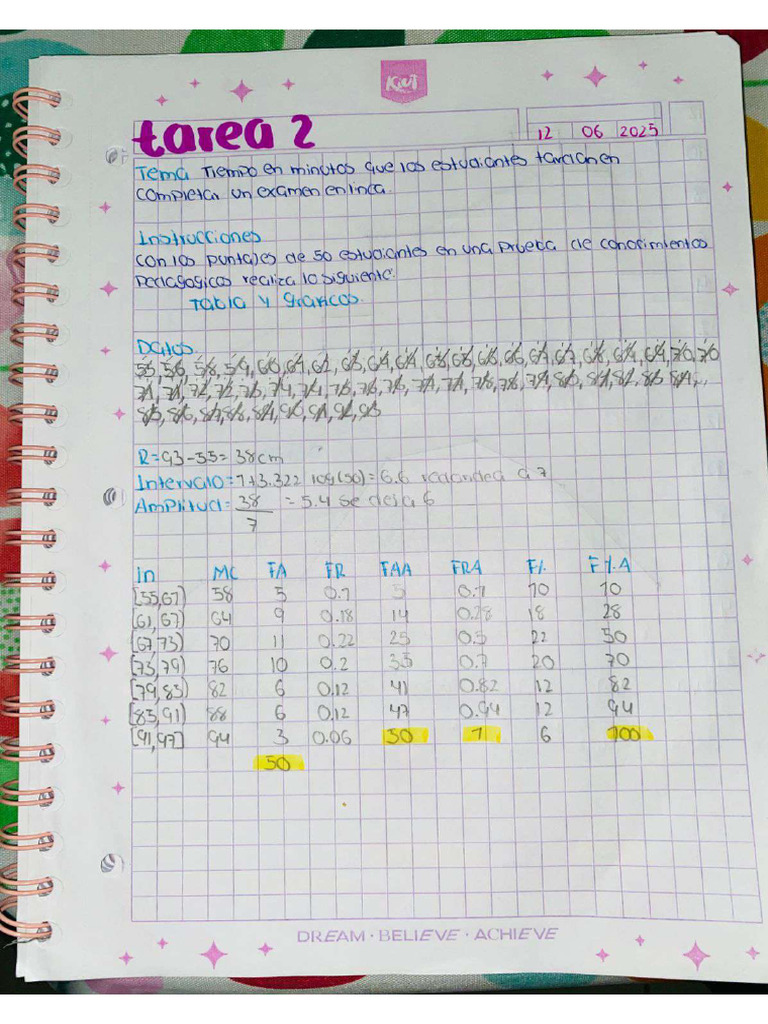 KIUT
tarea 2
12 06 2025
Tema Tiempo en minutos que los estudiantes tardan en
completar un examen en linea.
Instrucciones
Con los puntajes de 50 estudiantes en una prueba de conocimientos
pedagogicos realiza lo siguiente.
Tabla y graficos.
Datos
55, 56, 58, 59, 60, 61, 62, 63, 64, 64, 65, 66, 67, 67, 68, 69, 69, 70, 70
71, 71, 72, 72, 73, 74, 74, 75, 76, 76, 77, 77, 78, 78, 79, 80, 81, 82, 83 84,
85, 86, 87, 88, 89, 90, 91, 92, 93
R=93-55=38cm
Intervalo=1+3.322 log(50)=6.6 redondea a 7
Amplitud= 38 = 5.4 se deja 6
7
In MC FA FR FAA FRA F% F%A
[55,61) 58 5 0.1 5 0.1 10 10
[61,67) 64 9 0.18 14 0.28 18 28
[67,73) 70 11 0.22 25 0.5 22 50
[73,79) 76 10 0.2 35 0.7 20 70
[79,85) 82 6 0.12 41 0.82 12 82
[85,91) 88 6 0.12 47 0.94 12 94
[91,97] 94 3 0.06 50 1 6 100
50
DREAM · BELIEVE · ACHIEVE